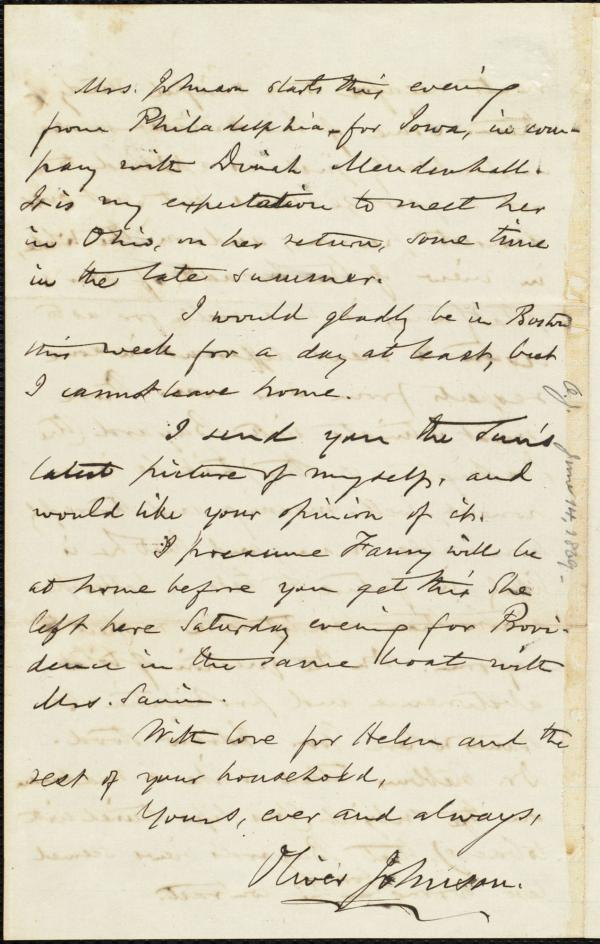 Mrs. Johnson starts this evening
from Philadelphia, for Iowa, in com-
pany with Dinah Mendenhall.
It is my expectation to meet her
in Ohio, on her return, some time
in the late summer.
I would gladly be in Boston
this week for a day at least, but
I cannot leave home.
I send you the Sun's
latest picture of myself, and
would like your opinion of it.
I presume Fanny will be
at home before you get this. She
left here Saturday evening for Provi-
dence in the same boat with
Mrs. 
With love for Helen and the
rest of your household,
Yours, ever and always,
Oliver Johnson.
O.J. June 14,